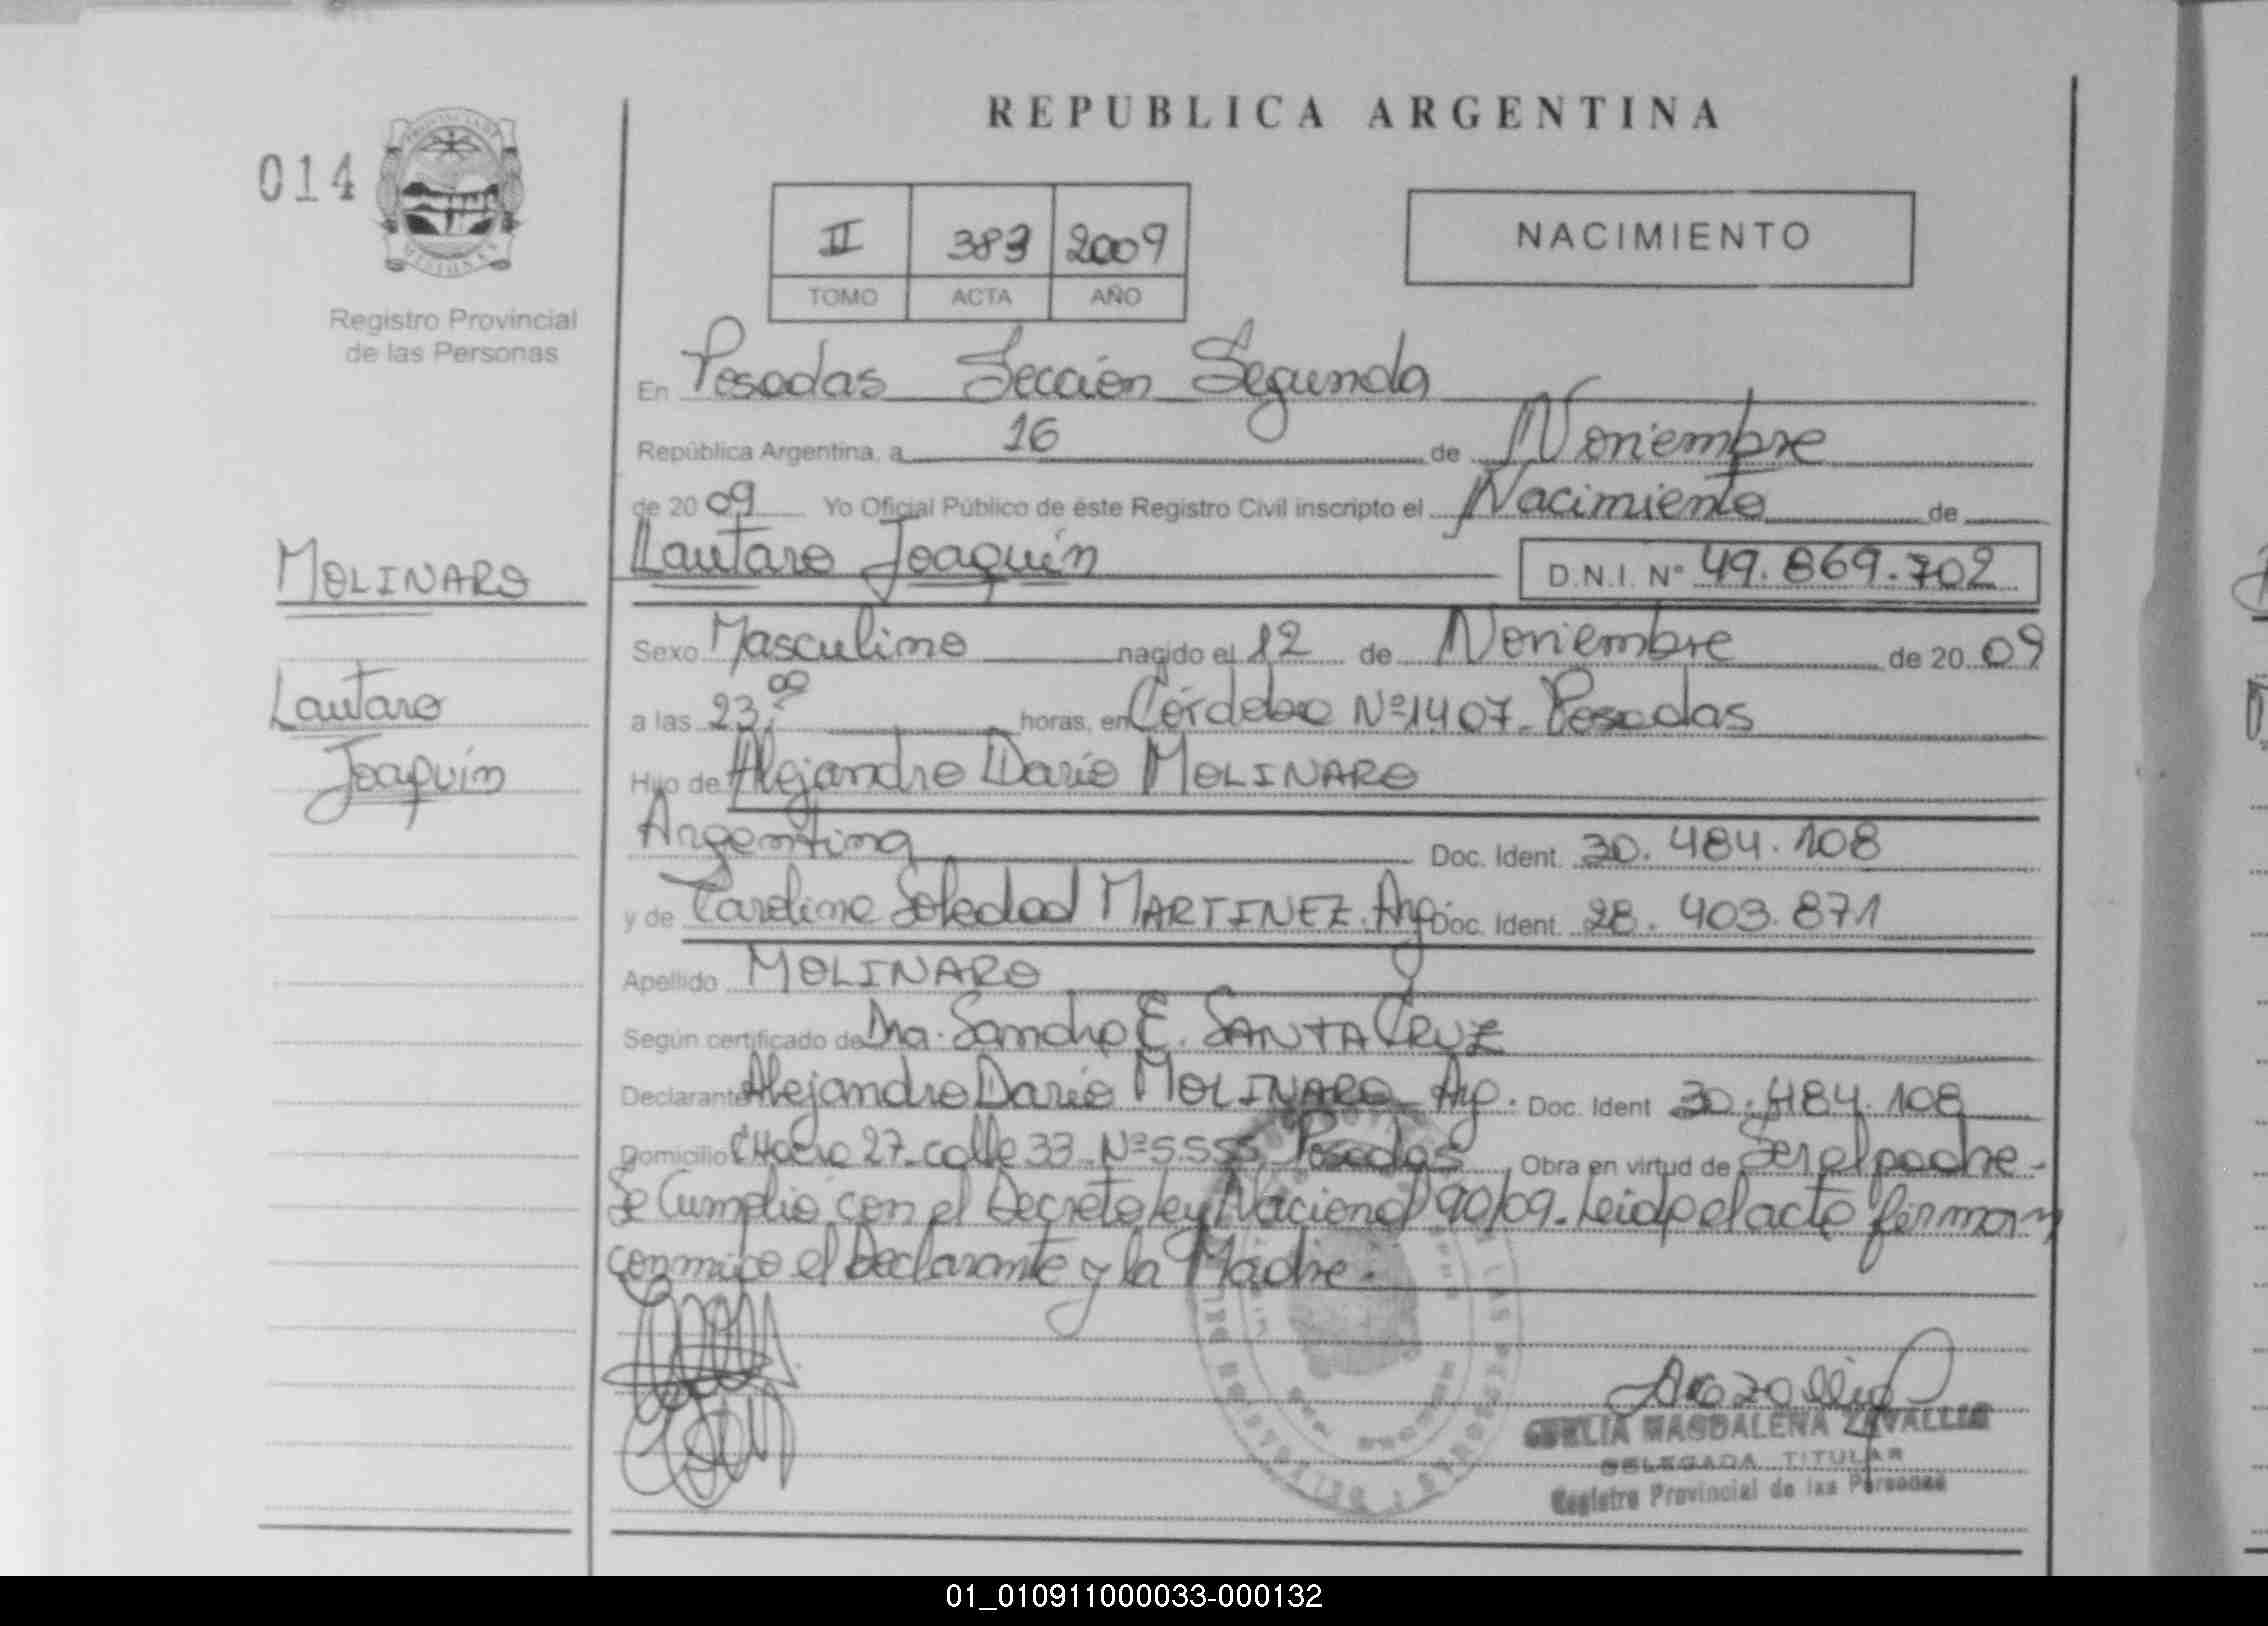 REPUBLICA ARGENTINA
014
PROVINCIA DE
MISIONES
Registro Provincial
de las Personas
II 383 2009
TOMO ACTA AÑO
NACIMIENTO
En Posadas Sección Segunda
República Argentina, a 16 de Noviembre
de 2009 Yo Oficial Público de éste Registro Civil inscripto el Nacimiento de
Lautaro Joaquín D.N.I. Nº 49.869.702
MOLINARO
Lautaro
Joaquín
Sexo Masculino nacido el 12 de Noviembre de 2009
a las 23,00 horas, en Córdoba Nº 1407. Posadas
Hijo de Alejandro Darío MOLINARO
Argentina Doc. Ident. 30.484.108
y de Carolina Soledad MARTINEZ. Arg. Doc. Ident. 28.403.871
Apellido MOLINARO
Según certificado de Dra. Sandra E. SANTA CRUZ
Declarante Alejandro Darío MOLINARO Arg. Doc. Ident 30.484.108
Domicilio CHacra 27. calle 33 Nº 5.555 Posadas Obra en virtud de Ser el padre.
Se Cumplio con el Decreto ley Nacional 90/09. Leida el acta firman
conmigo el Declarante y la Madre.
MAGDALENA ZAVALLIA
DELEGADA TITULAR
Registro Provincial de las Personas
01_010911000033-000132